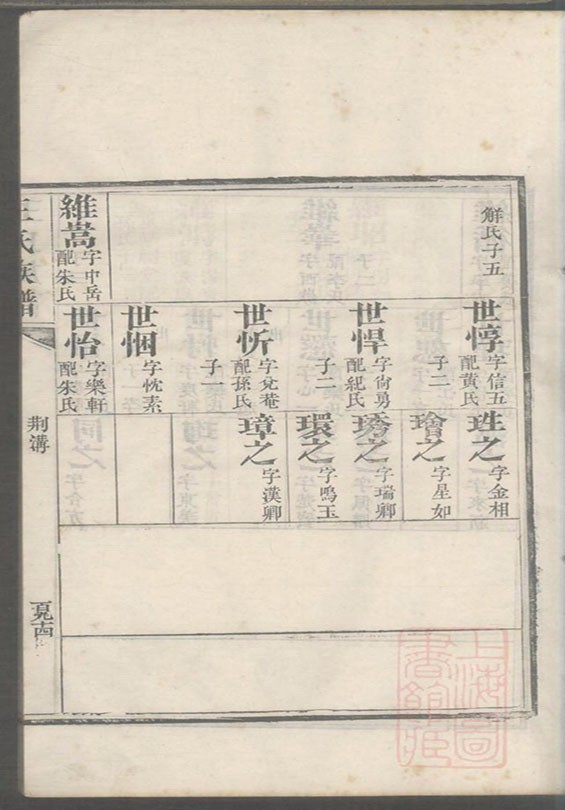 解氏子五
維嵩
字中岳
配朱氏
世惇
字信五
配黃氏
子二
世悍
字尙勇
配紀氏
子二
世忻
字兌菴
配孫氏
子一
世悃
字忱素
世怡
字樂軒
配朱氏
珄之
字金相
璯之
字星如
琇之
字瑞卿
環之
字鳴玉
璋之
字漢卿
王氏族譜
荆溝
上海圖
書館藏